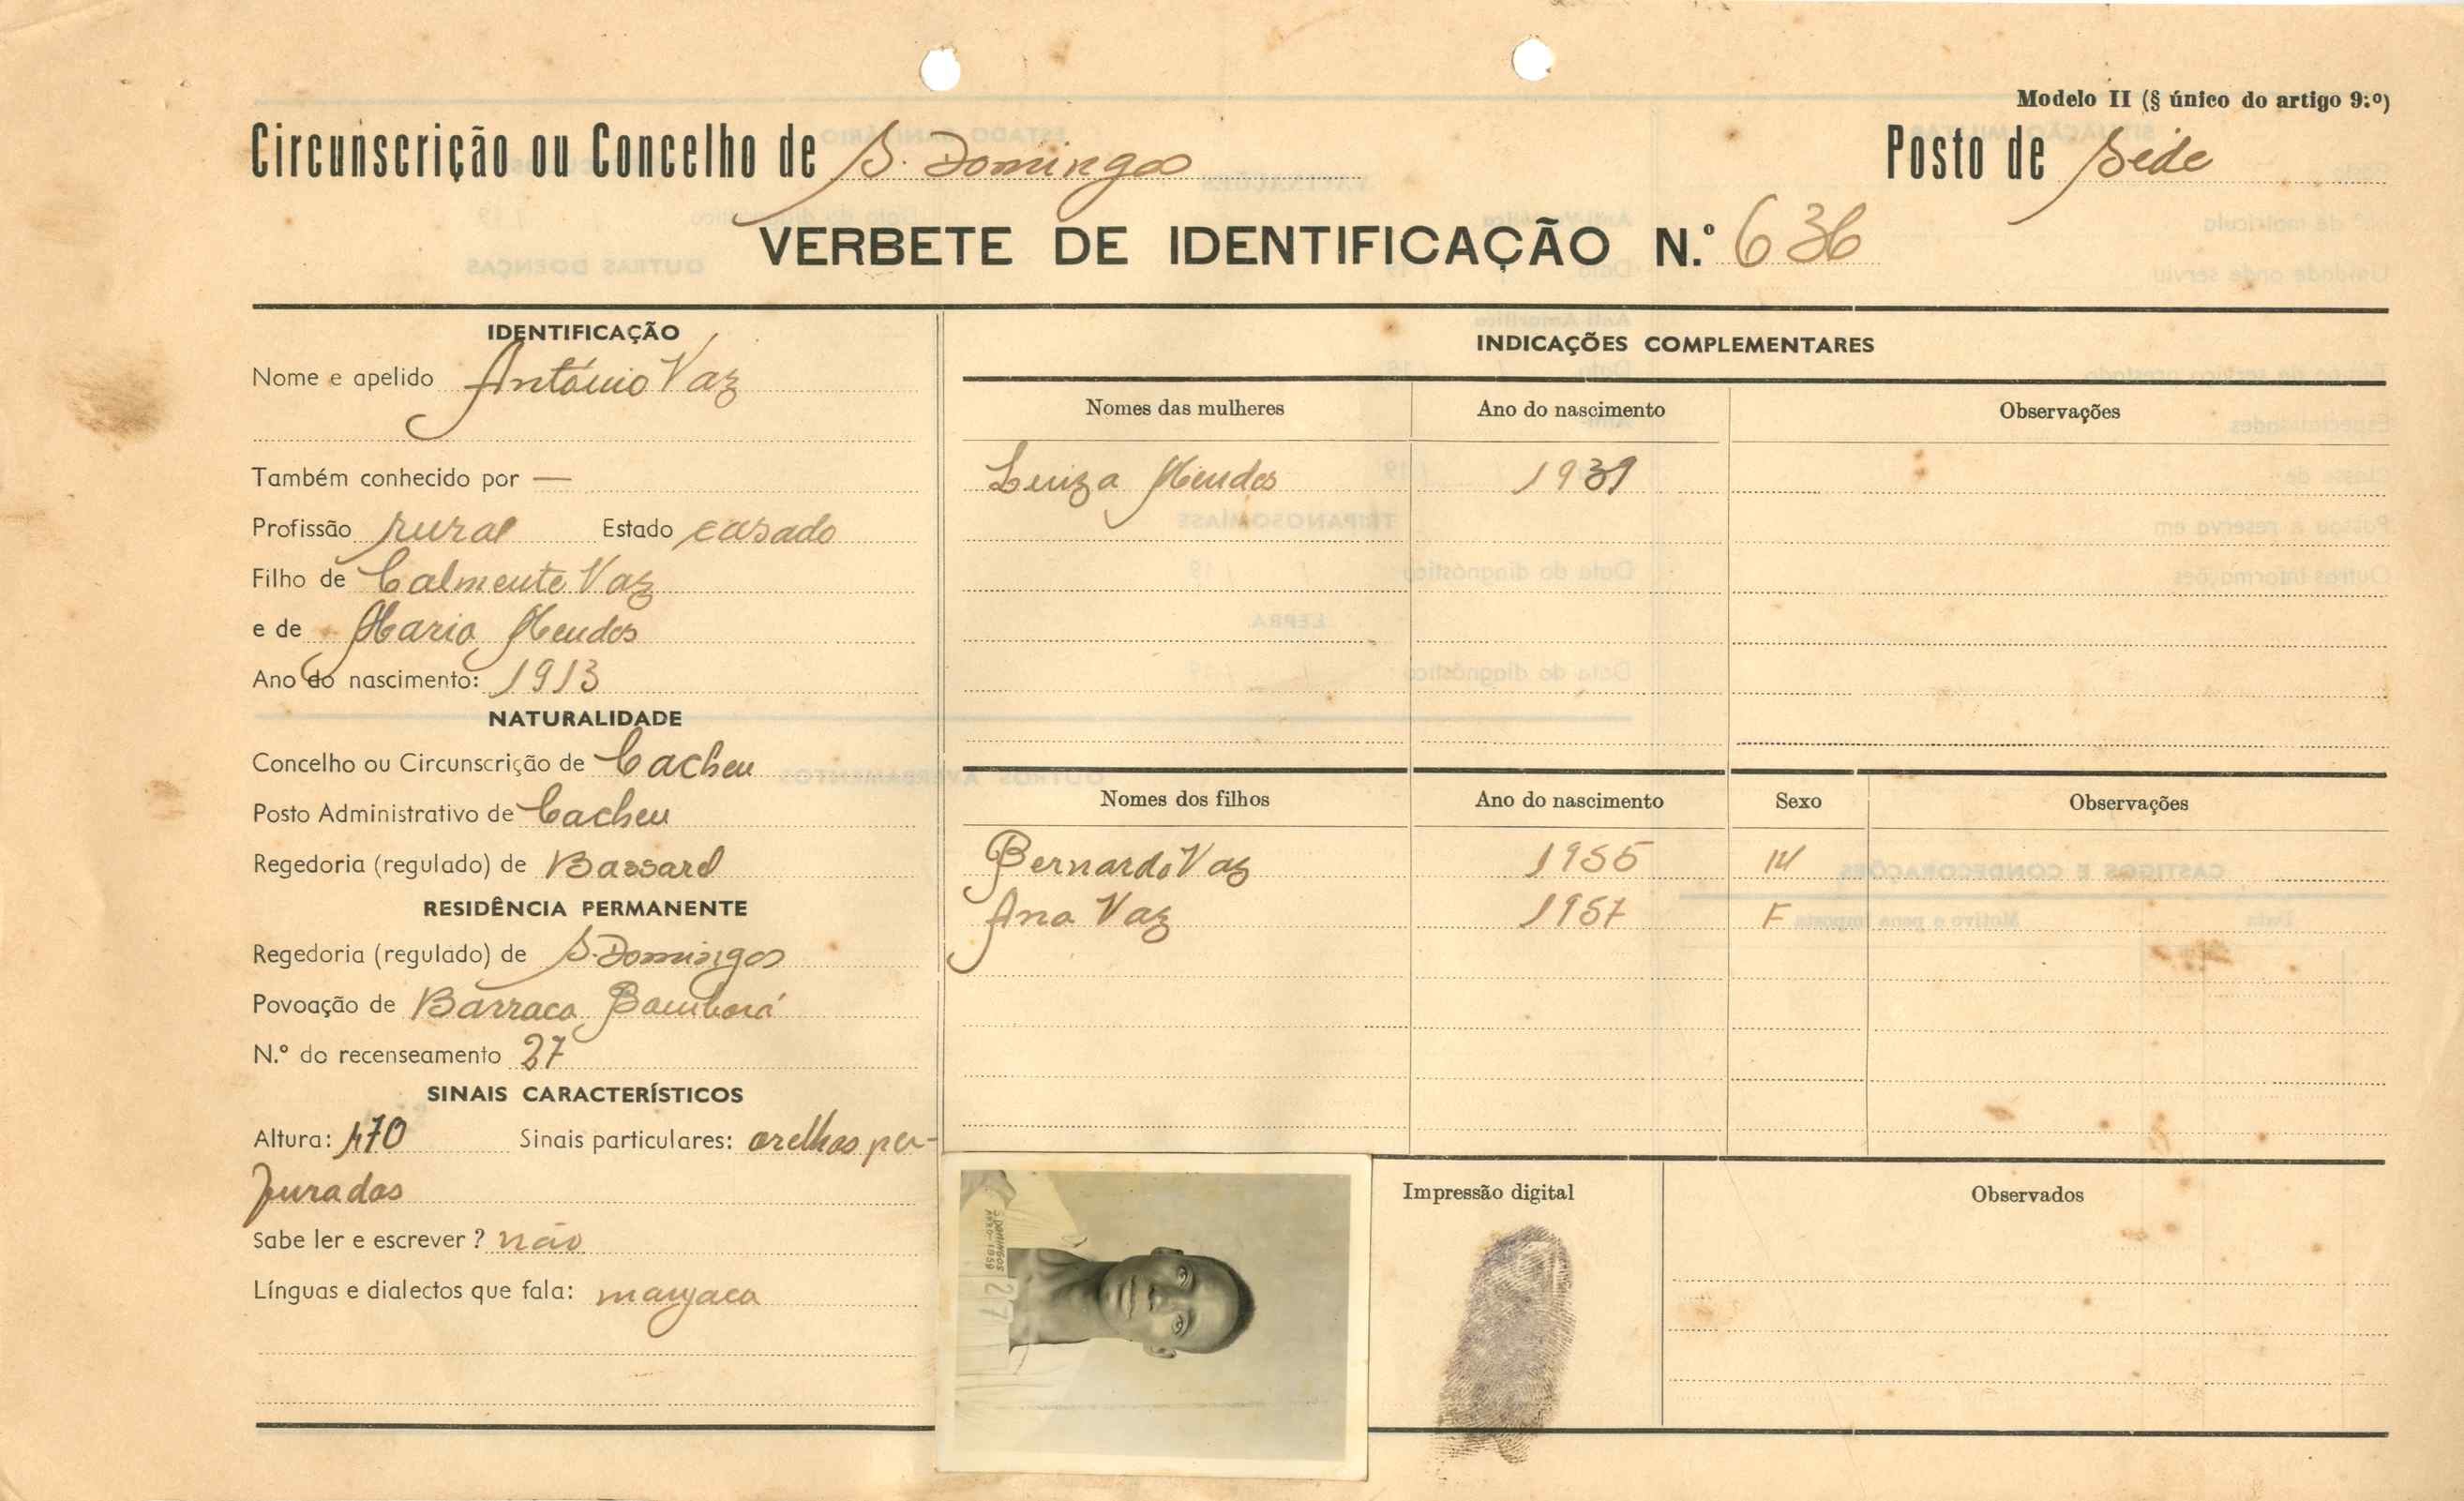 Modelo II (§ único do artigo 9.º)
Circunscrição ou Concelho de S. Domingos Posto de Sede
VERBETE DE IDENTIFICAÇÃO N.º 636
IDENTIFICAÇÃO
Nome e apelido António Vaz
Também conhecido por —
Profissão rural Estado casado
Filho de Calmente Vaz
e de Maria Mendes
Ano do nascimento: 1913
NATURALIDADE
Concelho ou Circunscrição de Cacheu
Posto Administrativo de Cacheu
Regedoria (regulado) de Bassarel
RESIDÊNCIA PERMANENTE
Regedoria (regulado) de S. Domingos
Povoação de Barraca
N.º do recenseamento 27
SINAIS CARACTERÍSTICOS
Altura: 1,70 Sinais particulares: orelhas per-
furadas
Sabe ler e escrever? não
Línguas e dialectos que fala: manjaca
INDICAÇÕES COMPLEMENTARES
Nomes das mulheres Ano do nascimento Observações
Luiza Mendes 1939
Nomes dos filhos Ano do nascimento Sexo Observações
Bernardo Vaz 1955 M
Ana Vaz 1957 F
S. DOMINGOS
ANO-1959
27
Impressão digital
Observados